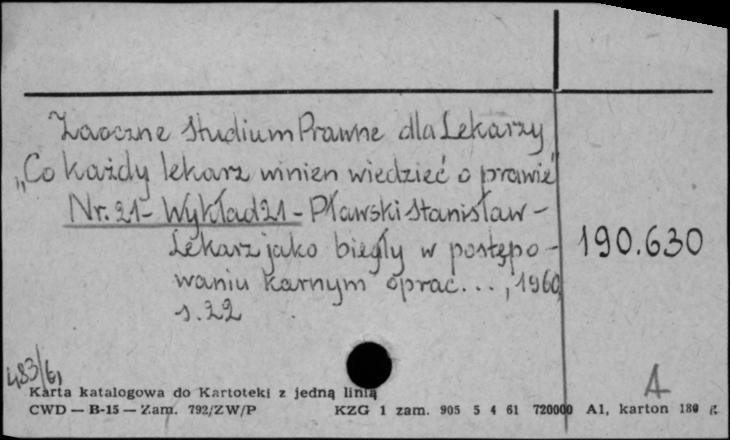 Zaoczne Studium Prawne dla Lekarzy
„Co każdy lekarz winien wiedzieć o prawie"
Nr. 21 - Wykład 21 - Pławski Stanisław -
Lekarz jako biegły w postępo-
waniu karnym oprac..., 1960,
s. 22
190.630
483/61
A
Karta katalogowa do Kartoteki z jedną linią
CWD — B-15 — Zam. 792/ZW/P KZG 1 zam. 905 5 4 61 720000 A1, karton 180 g.